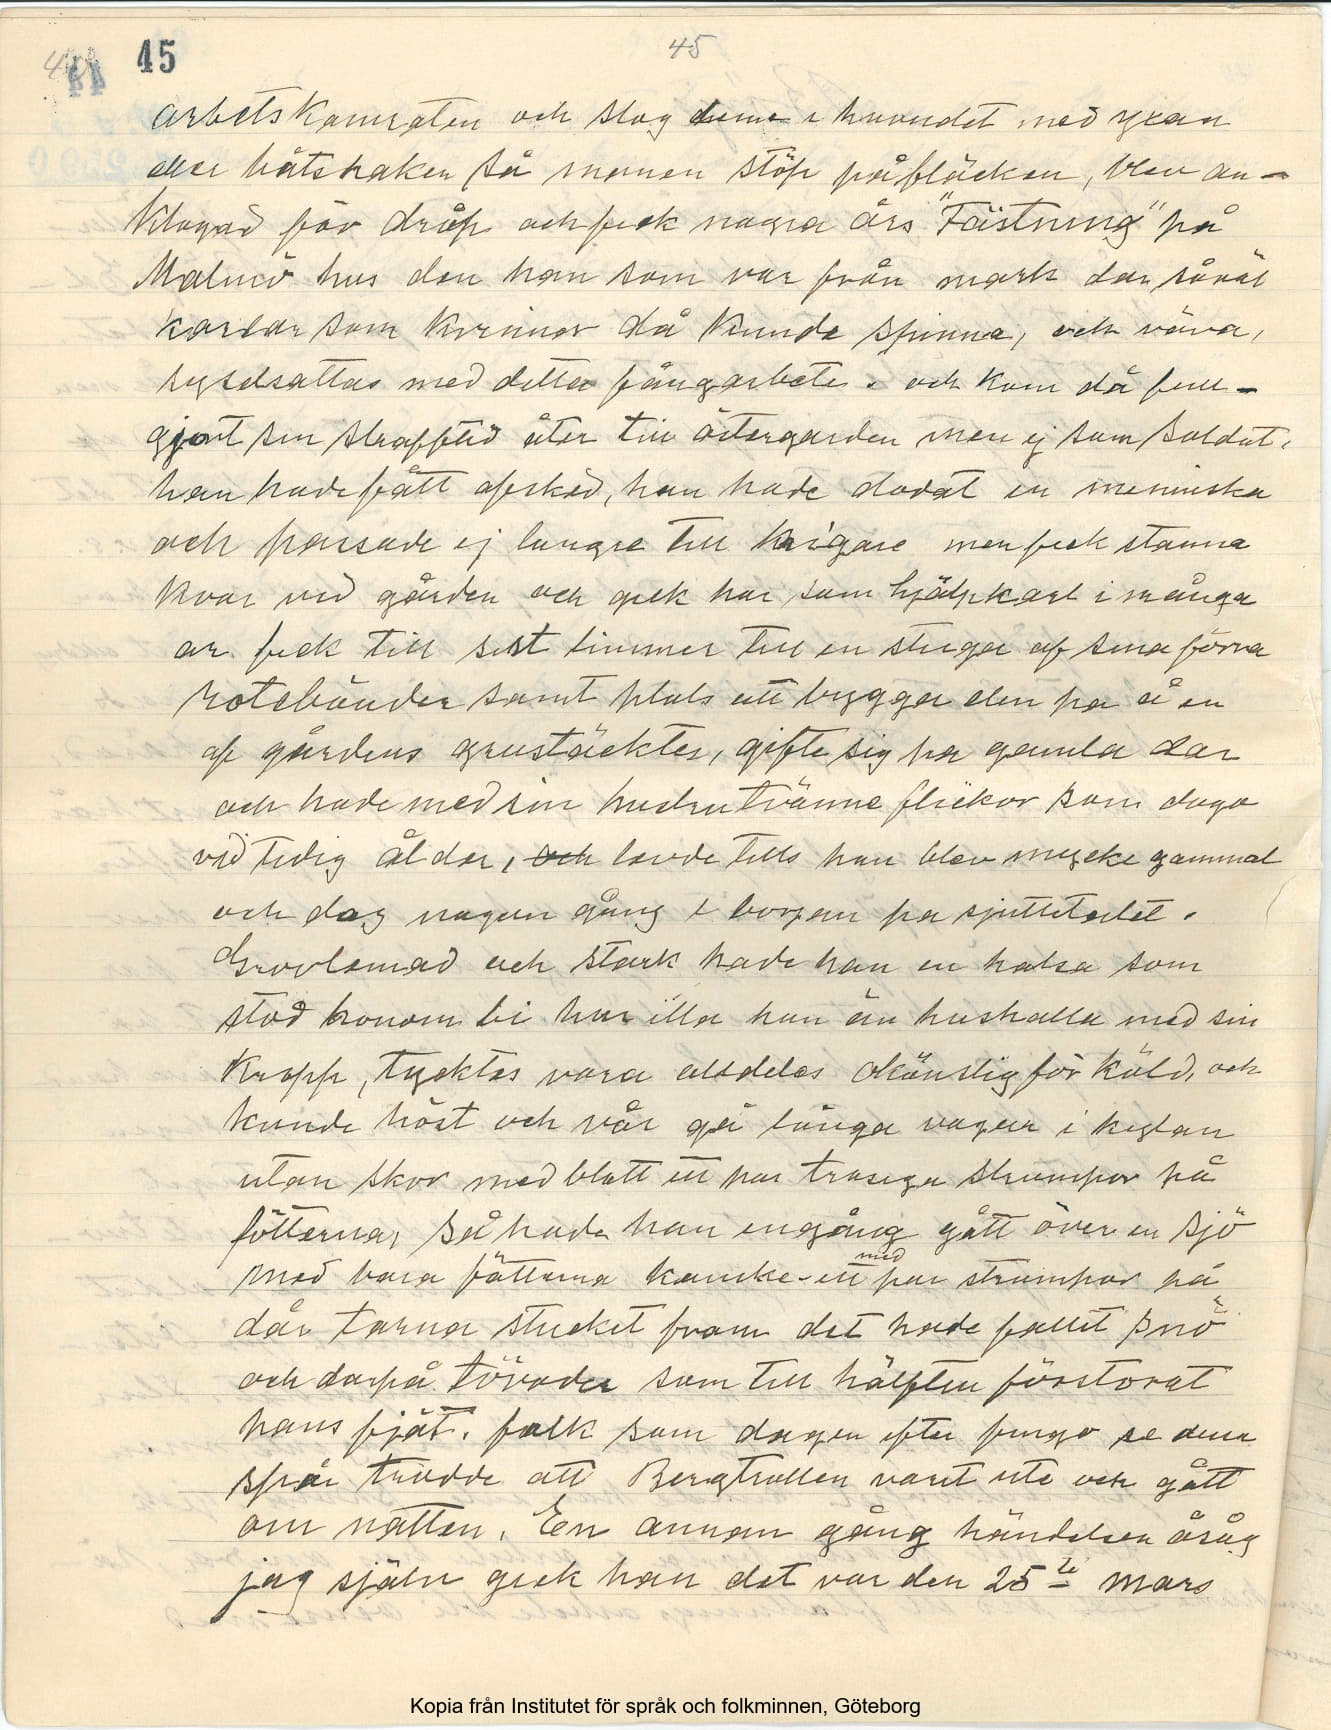 45
45
arbetskamraten och slog denne i huvudet med yxan
eller båtshaken så mannen stöp på fläcken, blev an-
klagad för dråp och feck nagra års "Fästning" på
Malmö hus den han som var från mark dar såväl
karlar som kvinnor då kunde spinna, och väva,
sysselsattas med detta fångarbete. och kom då full-
gjort sin strafftid åter till östergarden men ej som soldat.
han hade fått afsked, han hade dodat en menniska
och passade ej langre till krigare men feck stanna
kvar vid gården och geck har som hjälpkarl i många
ar. feck till sist timmer till en stuga af sina förra
rotebönder samt plats att bygga den pa å en
af gårdens grustäckter, gifte sig pa gamla dar
och hade med sin hustru tvänne flickor som dogo
vid tidig ålder, och levde tills han blev mycke gammal
och dog nagon gång i borjan pa sjuttitalet.
Grovlemad och stark hade han en halsa som
stod honom bi hur illa han än hushalla med sin
kropp, tycktes vara alldeles okänslig för köld, och
kunde höst och vår gå långa vagar i kylan
utan skor med blott ett par trasiga strumpor på
fötterna, så hade han engång gått över en sjö
med bara fötterna kanske ett med par strumpor på
där tarna stucket fram det hade fallit snö
och darpå töväder som till hälften förstorat
hans fjät. folk som dagen efter fingo se dem
spår trodde att Bergtrollen varit ute och gått
om natten. En annan gång händelsen åsåg
jag själv geck han det var den 25te mars
Kopia från Institutet för språk och folkminnen, Göteborg